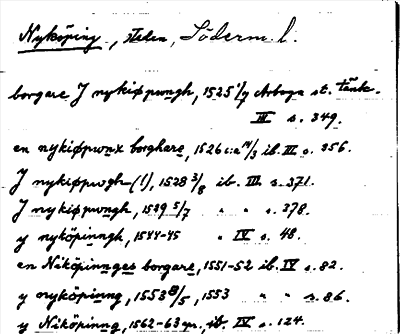 Nyköping, stelen, Söderm. l.
borgare J nykiøpwngh, 1525 1/7 Arboga st. tänk.
III s. 349.
en nykiøpwnx borghare, 1526 14/3 ib. III s. 356.
J nykiøpwgh (!), 1528 3/8 ib. III s. 371.
J nykiøpwngh, 1529 5/7 " " s. 378.
y nyköpinngh, 1544-45 " IV s. 48.
en Niköpinnges borgare, 1551-52 ib. IV s. 82.
y nyköpinng, 1553 8/5, 1553 " " s. 86.
y Niköpinng, 1562-63 ib. IV s. 124.